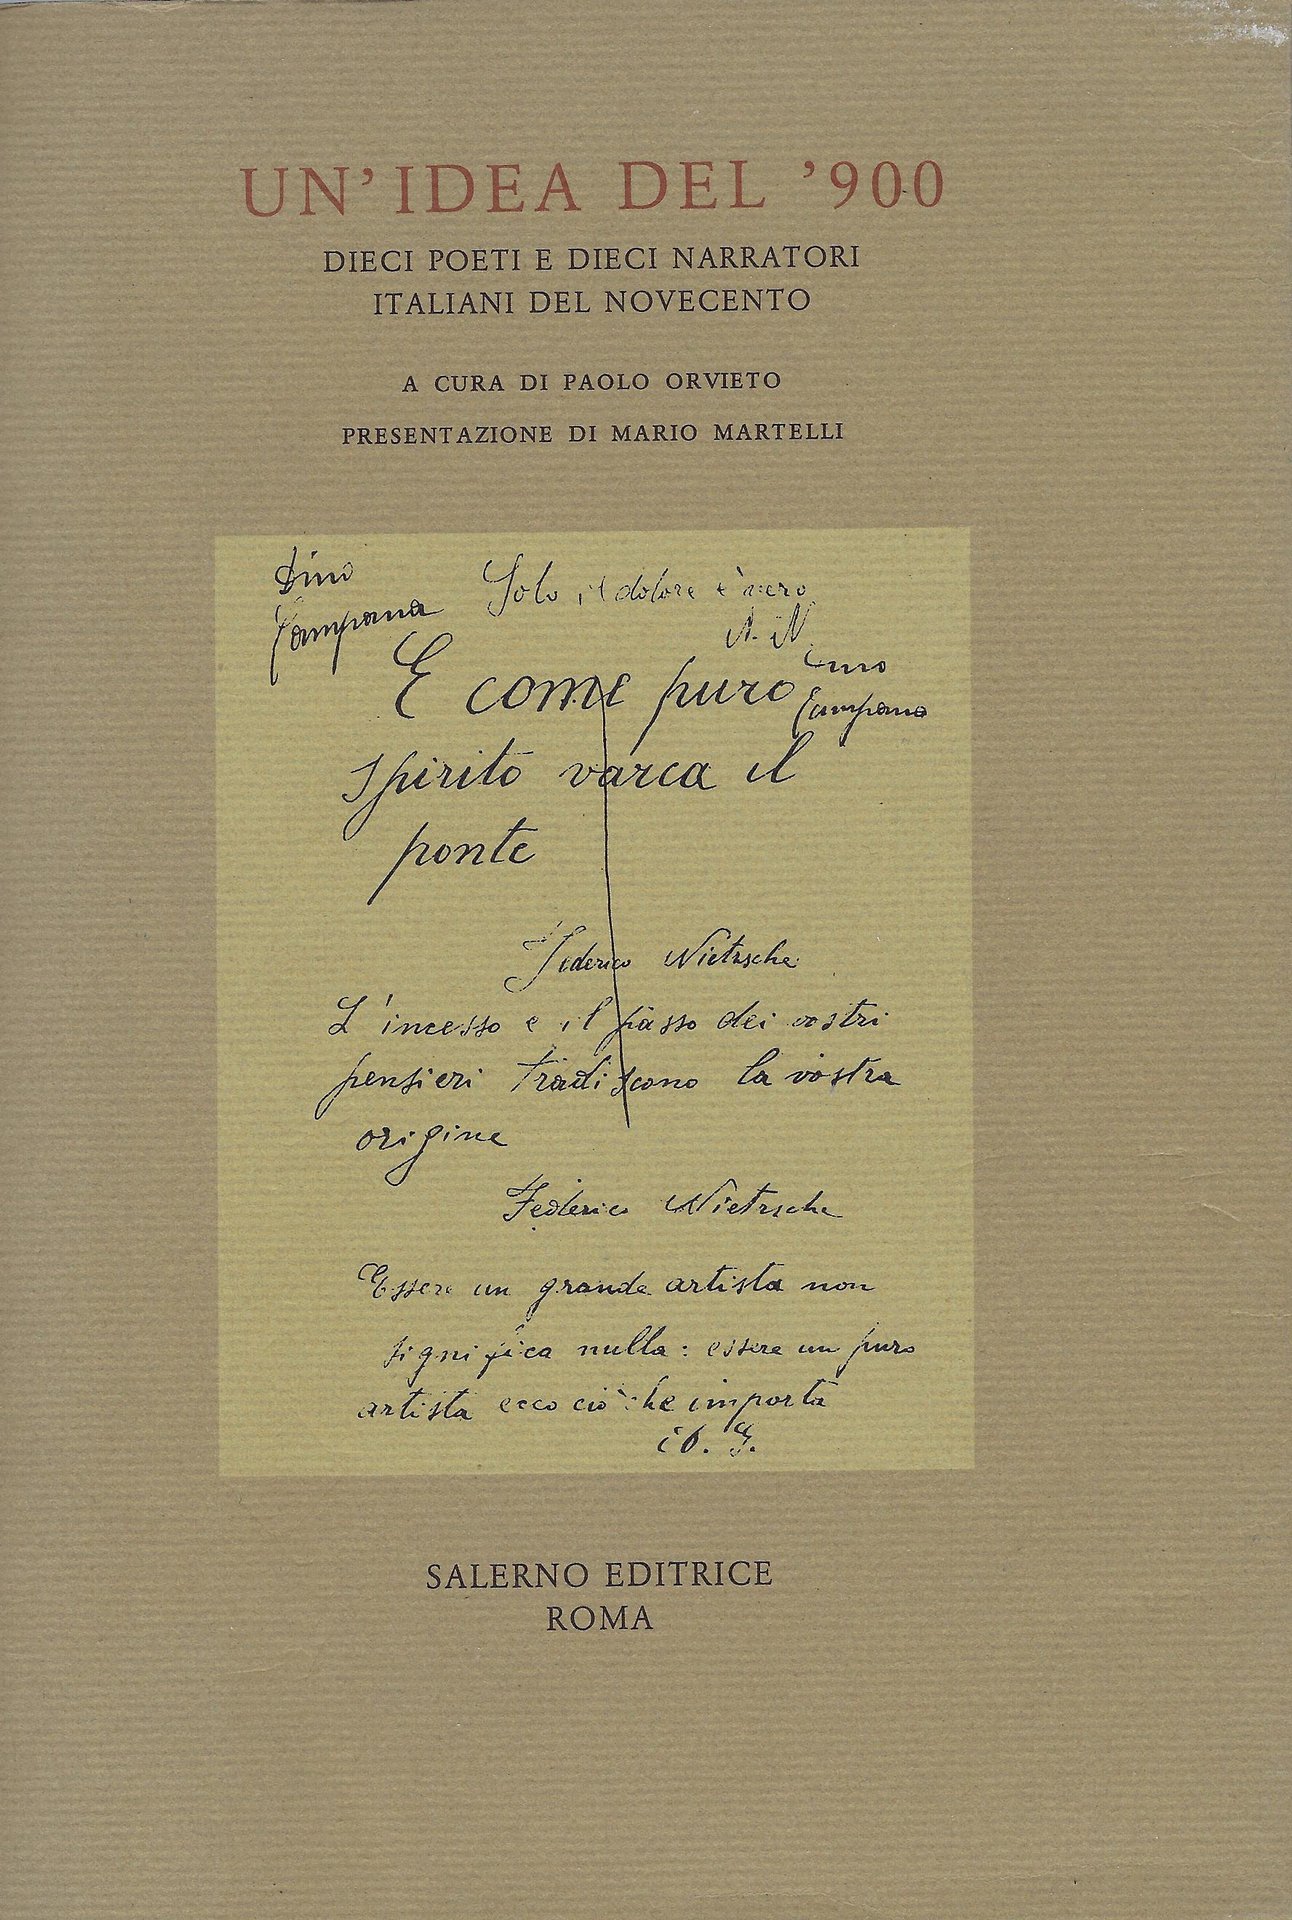 UN'IDEA DEL '900
DIECI POETI E DIECI NARRATORI
ITALIANI DEL NOVECENTO
A CURA DI PAOLO ORVIETO
PRESENTAZIONE DI MARIO MARTELLI
Dino
Campana
Solo il dolore è vero
A. N.
E come puro
Dino
Campana
spirito varca il
ponte
Federico Nietzsche
L'incesso e il passo dei vostri
pensieri tradiscono la vostra
origine
Federico Nietzsche
Essere un grande artista non
significa nulla: essere un puro
artista ecco ciò che importa
SALERNO EDITRICE
ROMA